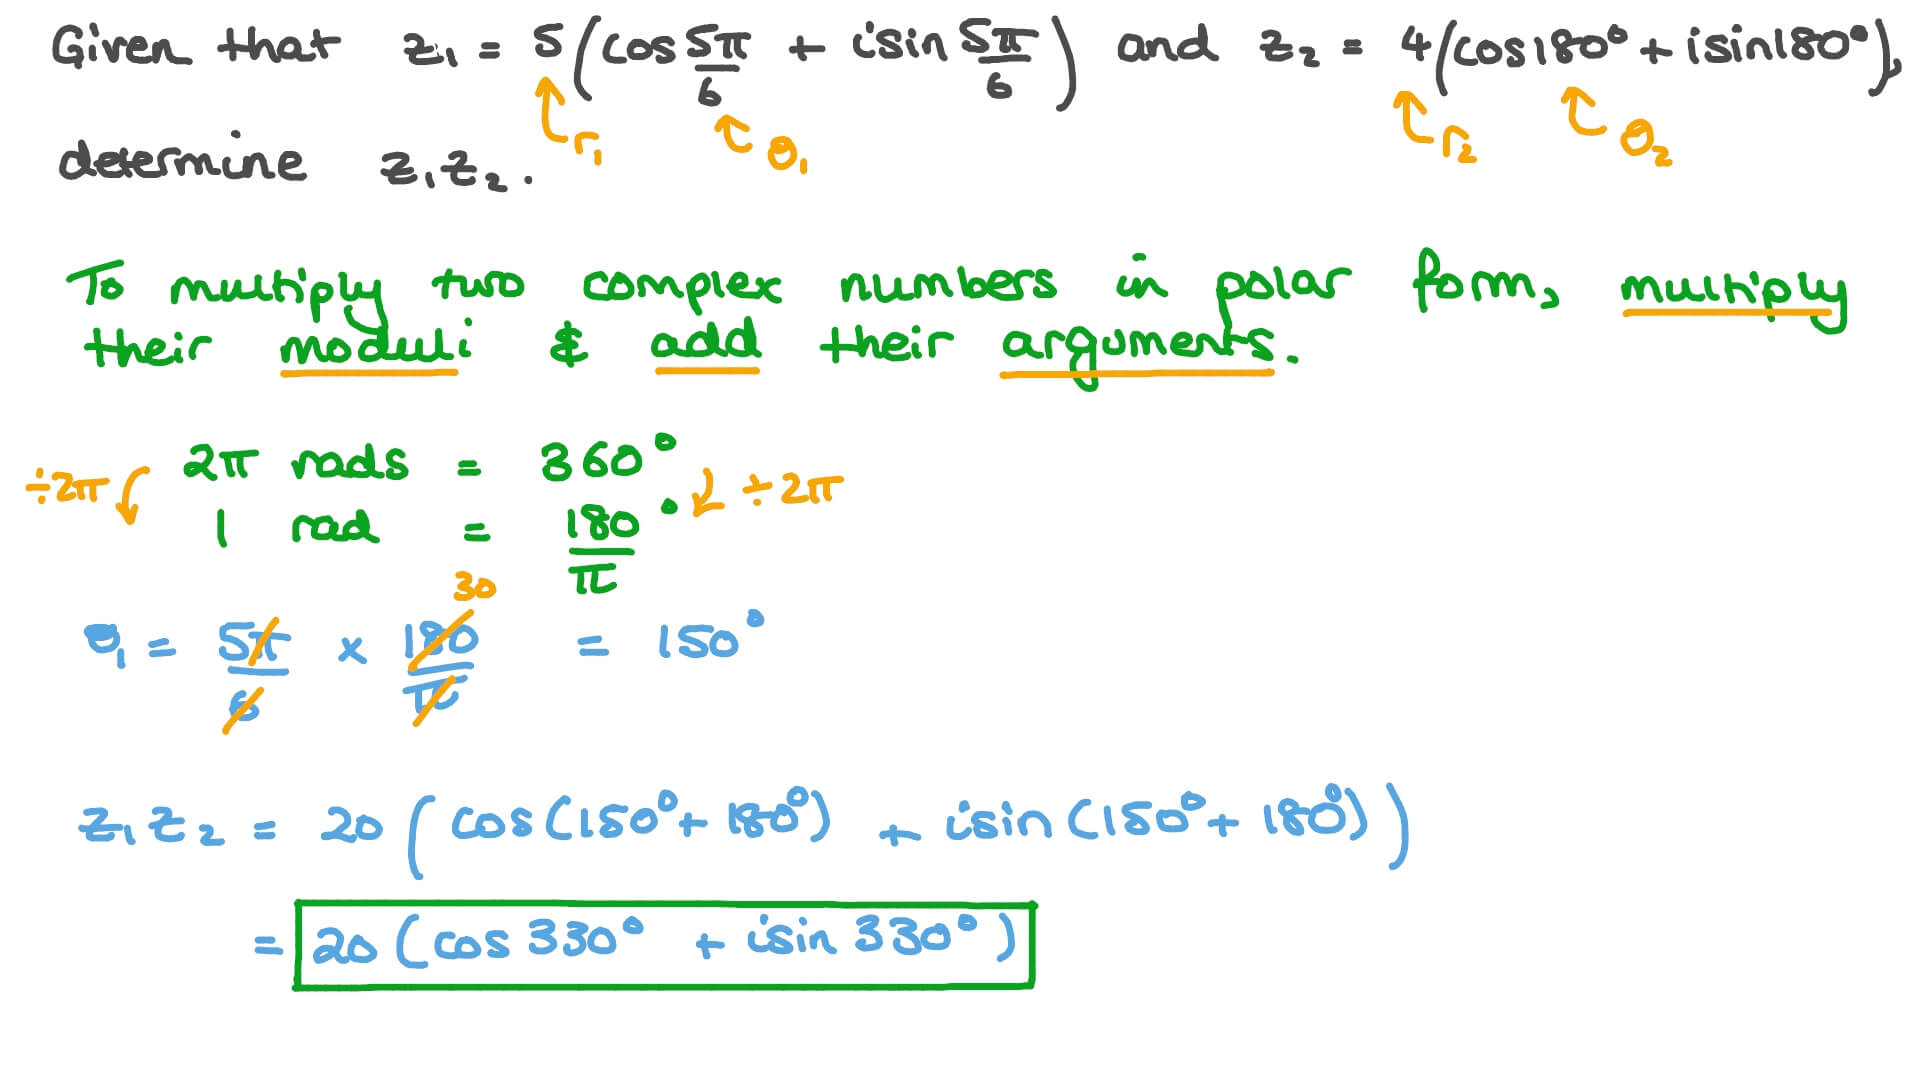 Given that z₁ = 5(cos 5π/6 + isin 5π/6) and z₂ = 4(cos180° + isin180°),
r₁ θ₁ r₂ θ₂
determine z₁z₂.
To multiply two complex numbers in polar form, multiply
their moduli & add their arguments.
÷2π 2π rads = 360° ÷2π
1 rad = 180/π °
30
θ₁ = 5π/6 × 180/π = 150°
z₁z₂ = 20(cos(150°+180°) + isin(150°+180°))
= 20(cos 330° + isin 330°)